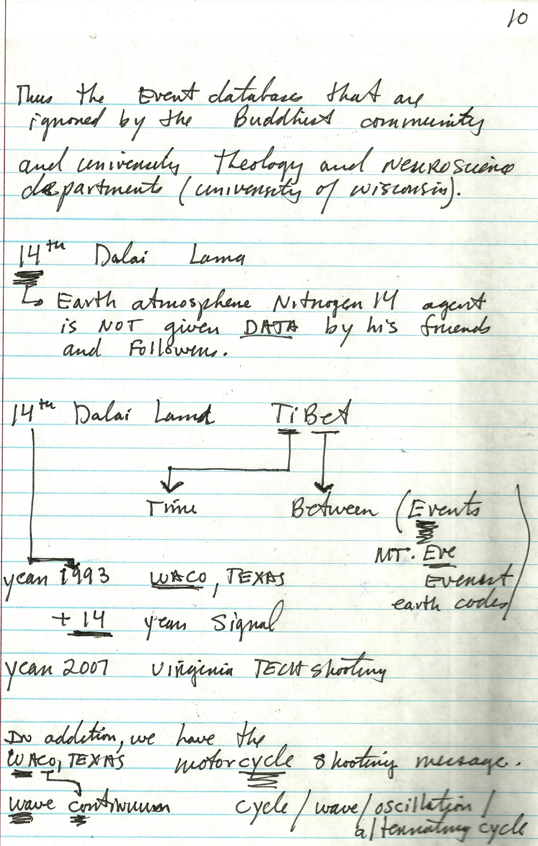 10
Thus the Event databases that are
ignored by the Buddhist community
and university theology and NEUROSCience
departments (university of wisconsin).
14th Dalai Lama
Earth atmosphere Nitrogen 14 agent
is NOT given DATA by his friends
and Followers.
14th Dalai Lama TiBet
Time Between (Events
MT. Eve
Everest
earth codes)
year 1993 WACO, TEXAS
+ 14 years Signal
year 2007 Virginia TECH shooting
In addition, we have the
WACO, TEXAS motorcycle shooting message.
wave continuum cycle / wave / oscillation /
alternating cycle